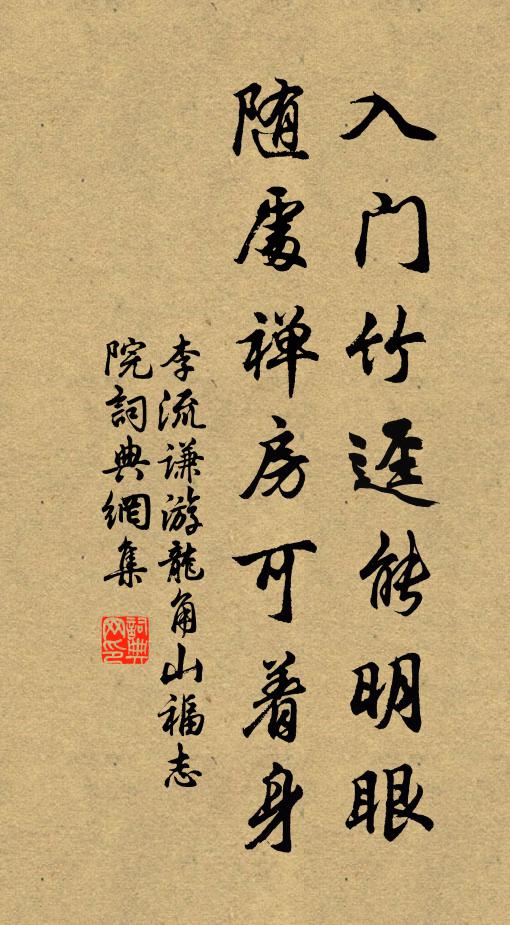 入门竹迳能明眼
随處禅房可着身
李流谦游龍角山福志
院詞典網集
詞典網印